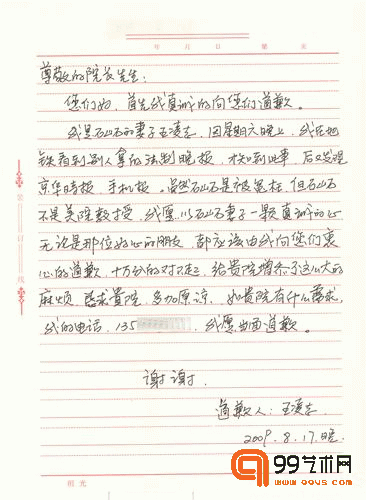 年 月 日 第 页
尊敬的院长先生：
您们好，首先我真诚的向您们道歉。
我是石山石的妻子王凌志，因星期六晚上，我在地
铁看到别人拿的法制晚报，才知到此事，后又发现
京华时报，手机报。虽然石山石是被冤枉，但石山石
不是美院教授，我愿以石山石妻子一颗真诚的心
无论是那位好心的朋友，都应该由我向您们衷
心的道歉，十万分的对不起，给贵院增添了这么大的
麻烦，恳求贵院，多加原凉，如贵院有什么需求，
我的电话，135 ，我愿当面道歉。
谢谢.
道歉人：王凌志
2009.8.17.晚.
装订线
99艺术网
www.99ys.com